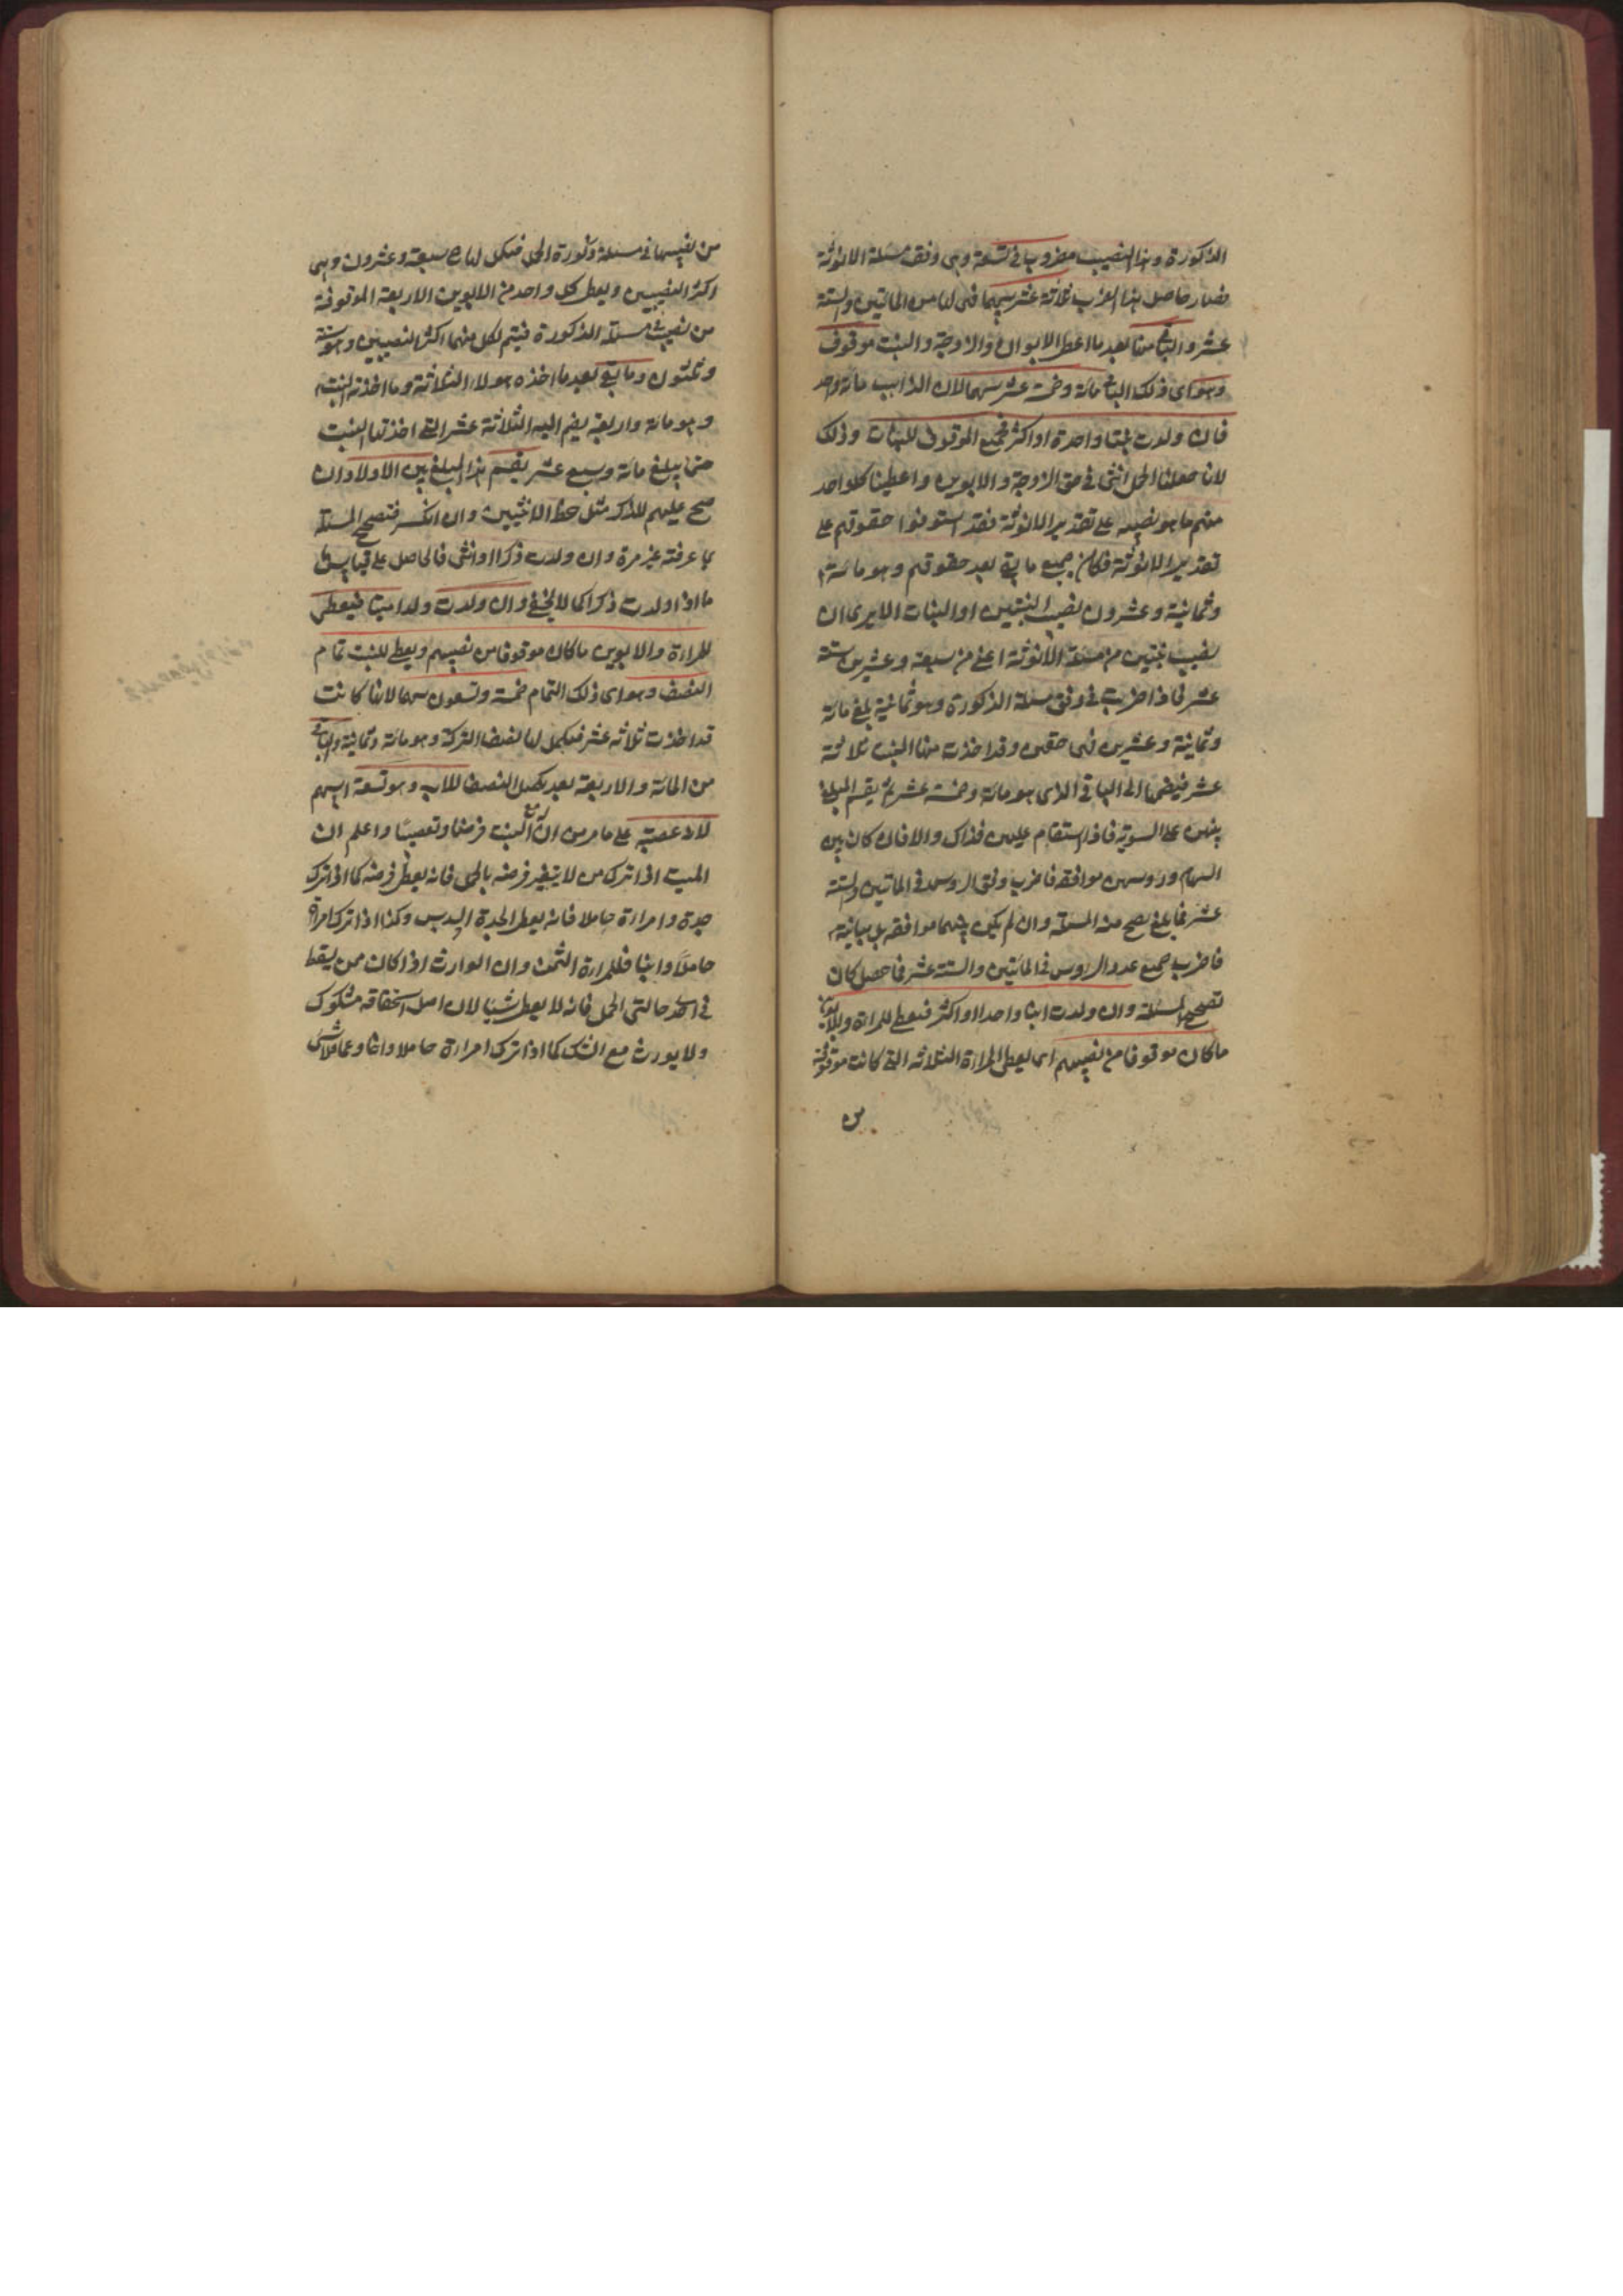 الذكورة وهذا النصيب مضروب في تسعة وهي وفق مسئلة الانوثة
فصار حاصل هذا الضرب ثلاثة عشر سهما فهي لها من المائتين والستة
عشر والباقي منها بعد ما اعطى الابوان والزوجة والبنت موقوف
وهو اي ذلك الباقي مائة وخمسة عشر سهما لان الذاهب مائة واحد
فان ولدت بنتا واحدة او اكثر فجميع الموقوف للبنات وذلك
لانا جعلنا الحمل انثى في حق الزوجة والابوين واعطينا كل واحد
منهم ما هو نصيبه على تقدير الانوثة فقد استوفوا حقوقهم على
تقدير الانوثة فكان جميع ما بقي بعد حقوقهم وهو مائة
وثمانية وعشرون نصيب البنتين او البنات الا يرى ان
نصيب بنتين من مسئلة الانوثة اعني من سبعة وعشرين ستة
عشر فاذا ضربت في وفق مسئلة الذكورة وهو ثمانية بلغ مائة
وثمانية وعشرين فهي حقهن وقد اخذت منها البنت ثلاثة
عشر فيضمها الى الباقي الذي هو مائة وخمسة عشر ثم يقسم المبلغ
بينهن على السوية فاذا استقام عليهن فذاك والا فان كان بين
السهام ورؤسهن موافقة فاضرب وفق الرؤس في المائتين والستة
عشر فما بلغ تصح منه المسئلة وان لم يكن بينهما موافقة بل مباينة
فاضرب جميع عدد الرؤس في المائتين والستة عشر فما حصل كان
تصحيح المسئلة وان ولدت ابنا واحدا او اكثر فيعطى للمراة وللابوين
ما كان موقوفا من نصيبهم اي يعطى المراة الثلاثة التي كانت موقوفة
من
من نصيبها في مسئلة ذكورة الحمل فيكمل لها سبعة وعشرون وهي
اكثر النصيبين ويعطى كل واحد من الابوين الاربعة الموقوفة
من نصيبه في مسئلة الذكورة فيتم لكل منهما اكثر النصيبين وهو ستة
وثلثون وما بقي بعد ما اخذه هولاء الثلاثة وما اخذته البنت
وهو مائة واربعة يضم اليه الثلاثة عشر التي اخذتها البنت
حتى يبلغ مائة وسبع عشر يقسم هذا المبلغ بين الاولاد ان
صح عليهم للذكر مثل حظ الانثيين وان انكسر فتصحح المسئلة
بما عرفته غير مرة وان ولدت ذكرا وانثى فالحاصل على قياس
ما اذا ولدت ذكرا كما لا يخفى وان ولدت ولدا ميتا فيعطى
للمراة والابوين ما كان موقوفا من نصيبهم ويعطى للبنت تمام
النصف وهو اي ذلك التمام خمسة وتسعون سهما لانها كانت
قد اخذت ثلاثه عشر فيكمل لها نصف التركة وهو مائة وثمانية والباقي
من المائة والاربعة بعد تكميل النصف للاب وهو تسعة اسهم
لانه عصبة على ما مر من ان له مع البنت فرضا وتعصيبا واعلم ان
الميت اذا ترك من لا يتغير فرضه بالحمل فانه يعطى فرضه كما اذا ترك
جدة وامراة حاملا فانه يعطى الجدة السدس وكذا اذا ترك امراة
حاملا وابنا فللمراة الثمن وان الوارث اذا كان ممن يسقط
في احدى حالتي الحمل فانه لا يعطى شيئا لان اصل استحقاقه مشكوك
ولا يورث مع الشك كما اذا ترك امراة حاملا واخا وعما فلا شئ